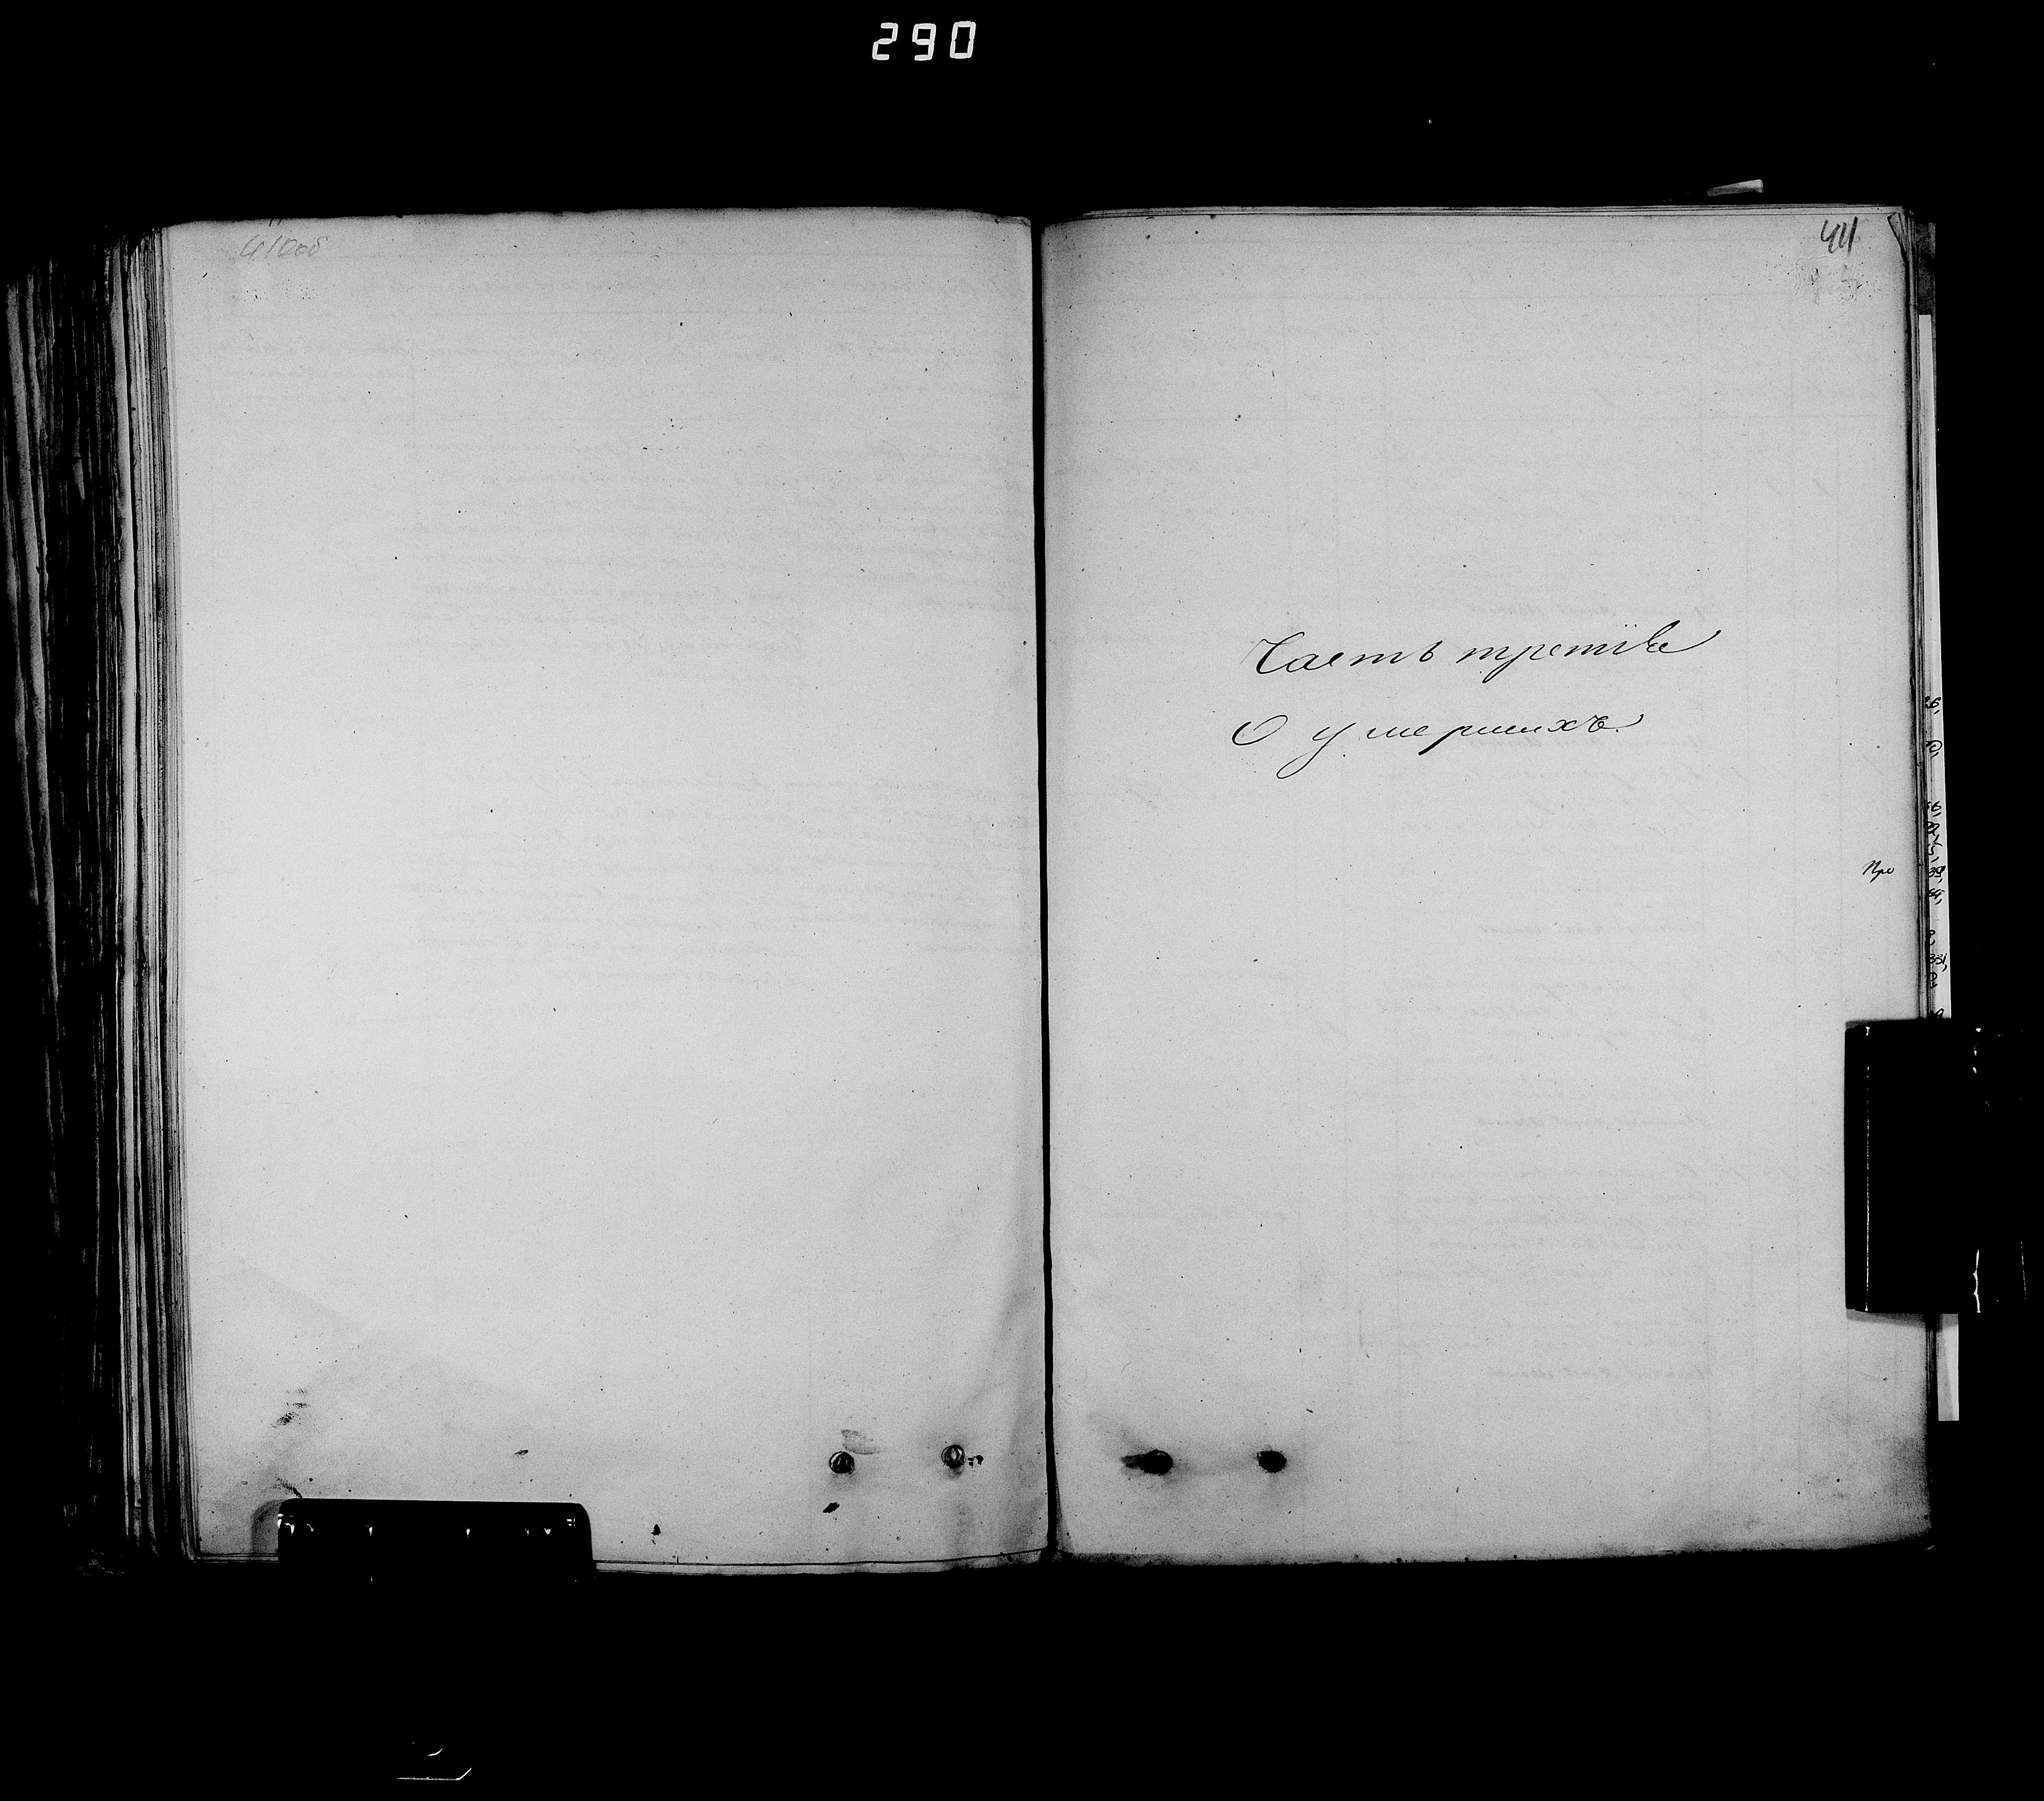 290
410об
411
Часть третiя
О умершихъ.
Про